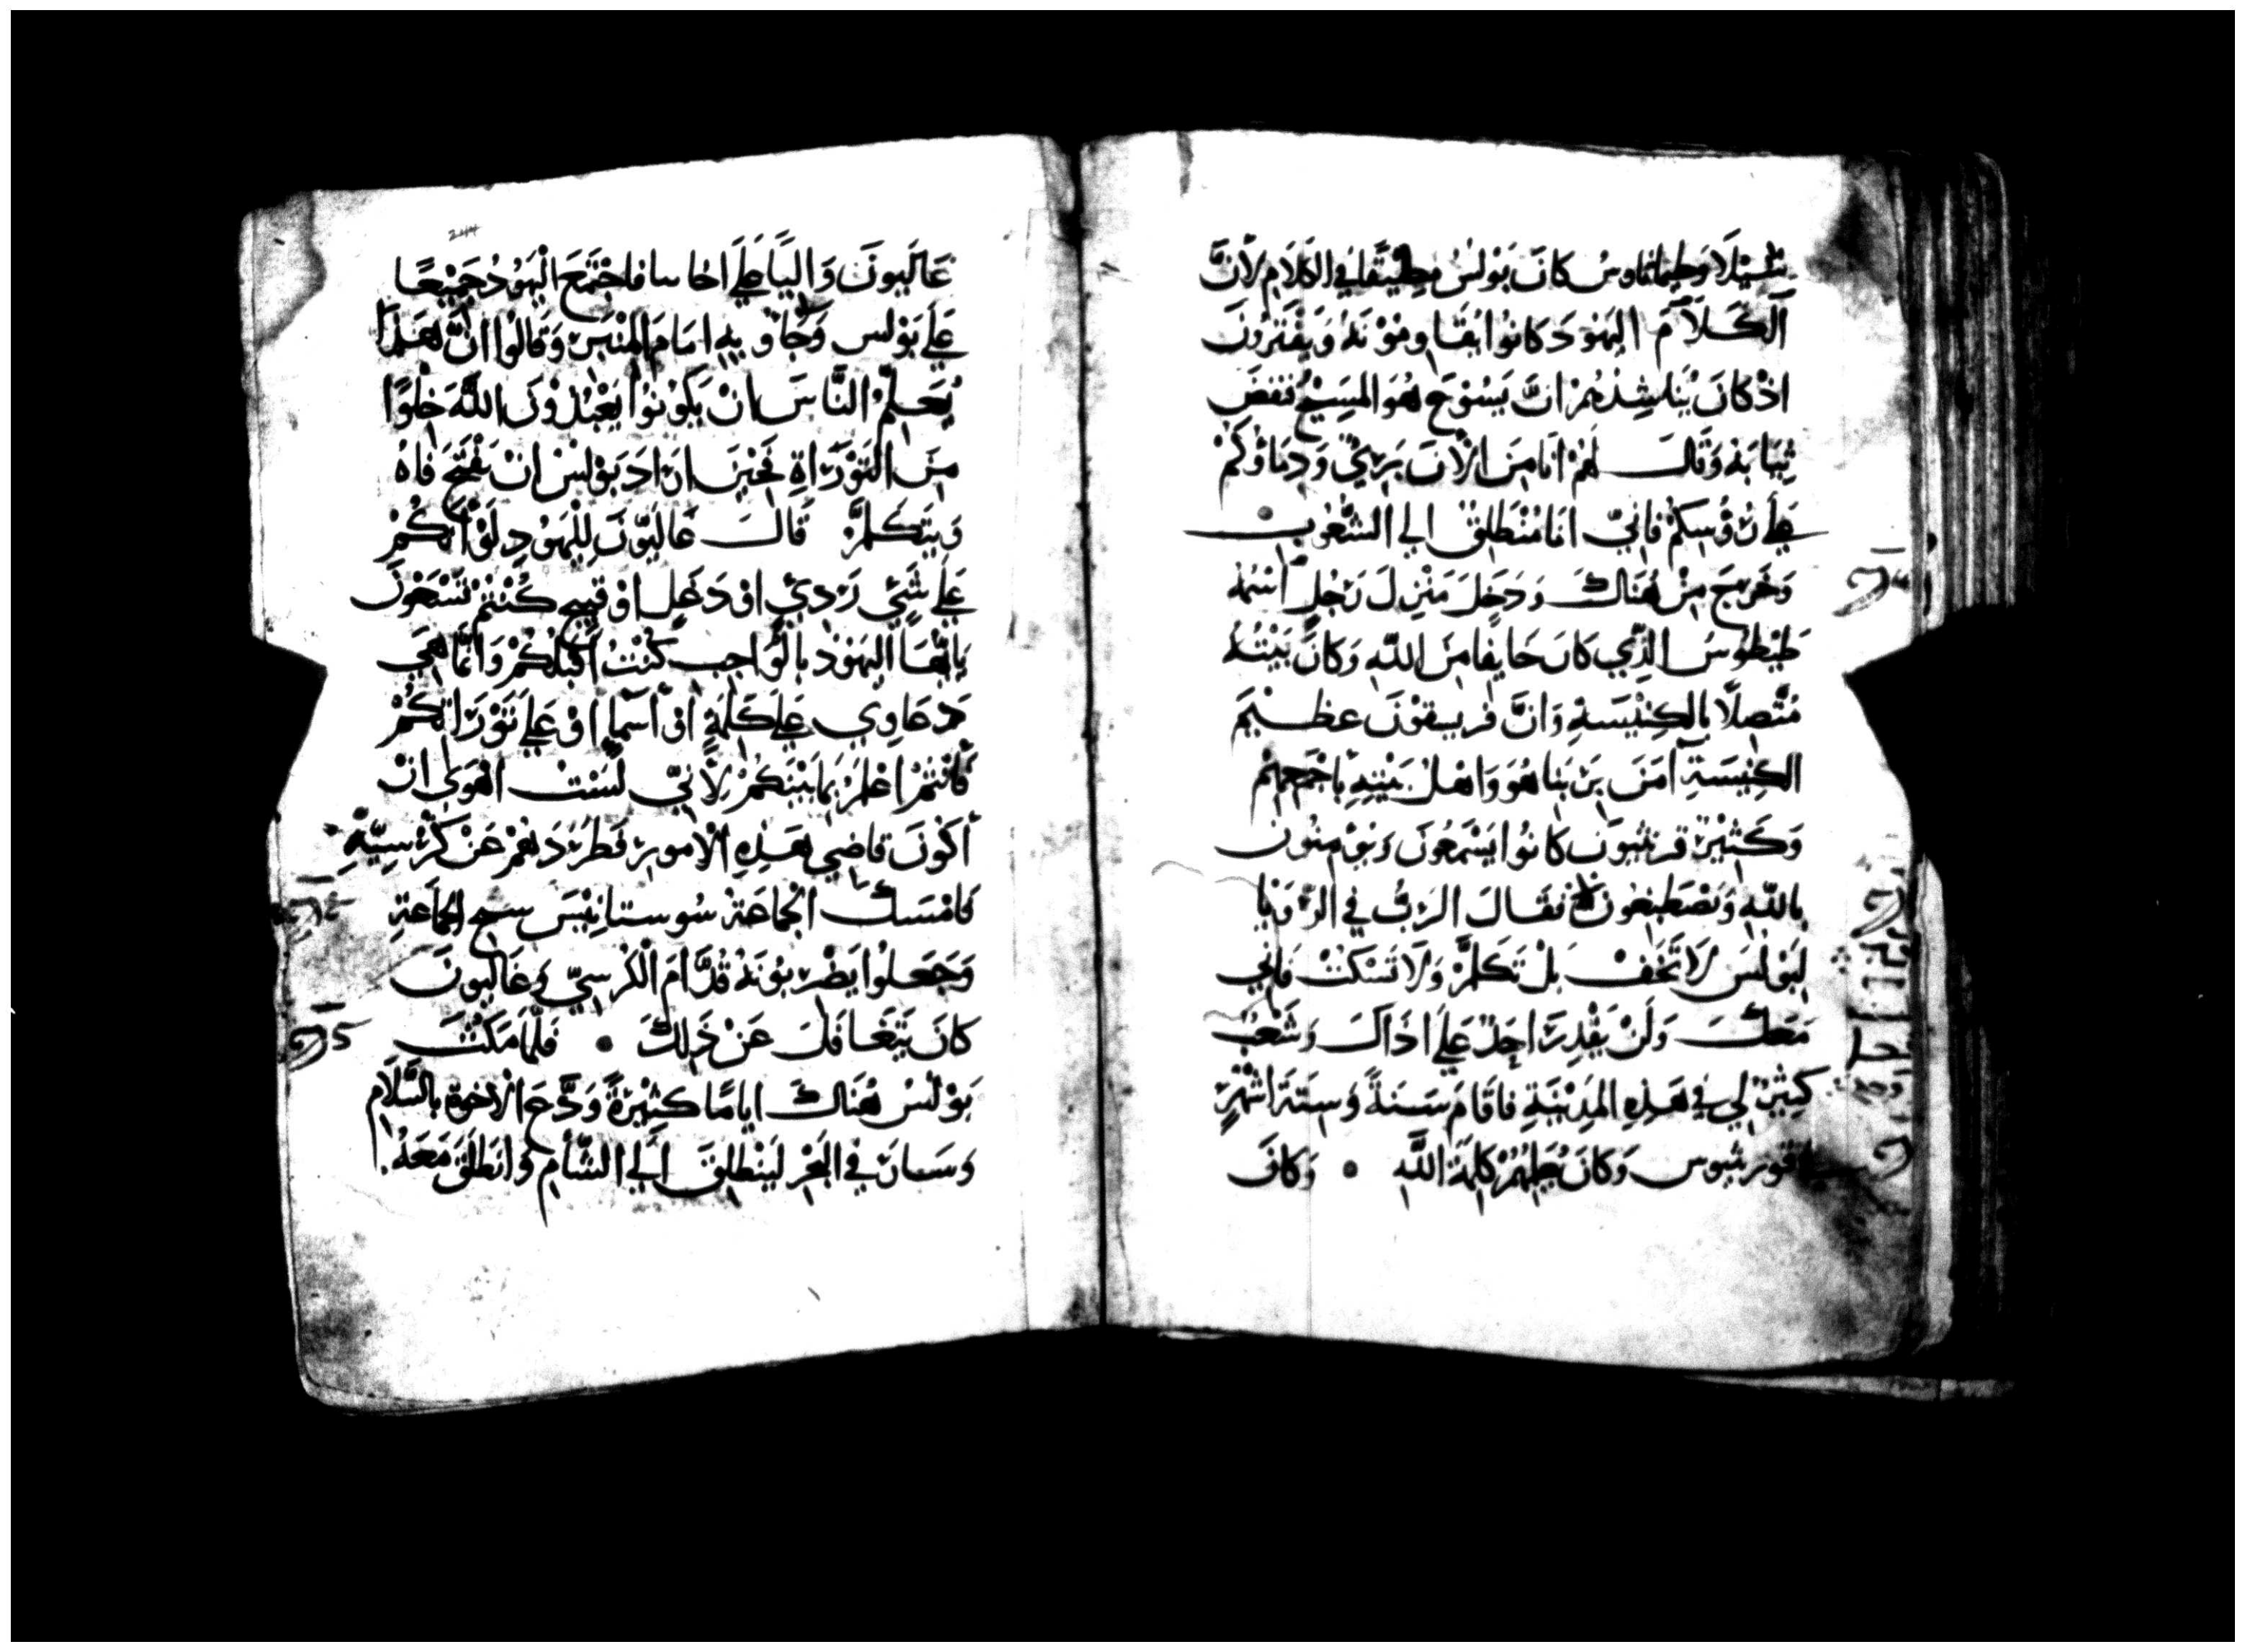 شيلا وطيماثاوس كان بولس مطيقا في الكلام لأن
الكلام اليهود كانوا يقاومونه ويفترون
اذ كان يناشدهم ان يسوع هو المسيح فنفض
ثيابه وقال لهم انا من الان بري ودماؤكم
على رؤوسكم فاني انا منطلق الي الشعوب
وخرج من هناك ودخل منزل رجل اسمه
طيطوس الذي كان خايفا من الله وكان بيته
متصلا بالكنيسة وان قريسقوس عظيم
الكنيسة آمن بربنا هو واهل بيته باجمعهم
وكثير قرنثيون كانوا يسمعون ويؤمنون
بالله ويصطبغون فقال الرب في الرؤيا
لبولس لا تخف بل تكلم ولا تسكت فاني
معك ولن يقدر احد علي اذاك وشعب
كثير لي في هذه المدينة فاقام سنة وستة اشهر
قورنثيوس وكان يعلمهم كلمة الله • وكان
244
غاليون واليا علي اخاسا فاجتمع اليهود جميعا
علي بولس وجاؤ به امام المنبر وقالوا ان هذا
يعلم الناس ان يكونوا يعبدون الله خلوا
من التوراة فحين اراد بولس ان يفتح فاه
ويتكلم قال غاليون لليهود لو انكم
علي شي ردي او دغل او قبيح كنتم تسعون
يا ايها اليهود بالواجب كنت اقبلكم وانما هي
دعاوي علي كلمة او اسما او علي توراتكم
فانتم اعلم بما بينكم لاني لست اهوي ان
اكون قاضي هذه الامور فطردهم عن كرسيه
فامسك الجماعة سوستانيس الجماعة
وجعلوا يضربونه قدام الكرسي وغاليون
كان يتغافل عن ذلك • فلما مكث
بولس هناك اياما كثيرة ودع الاخوة بالسلام
وسار في البحر لينطلق الي الشأم وانطلق معه